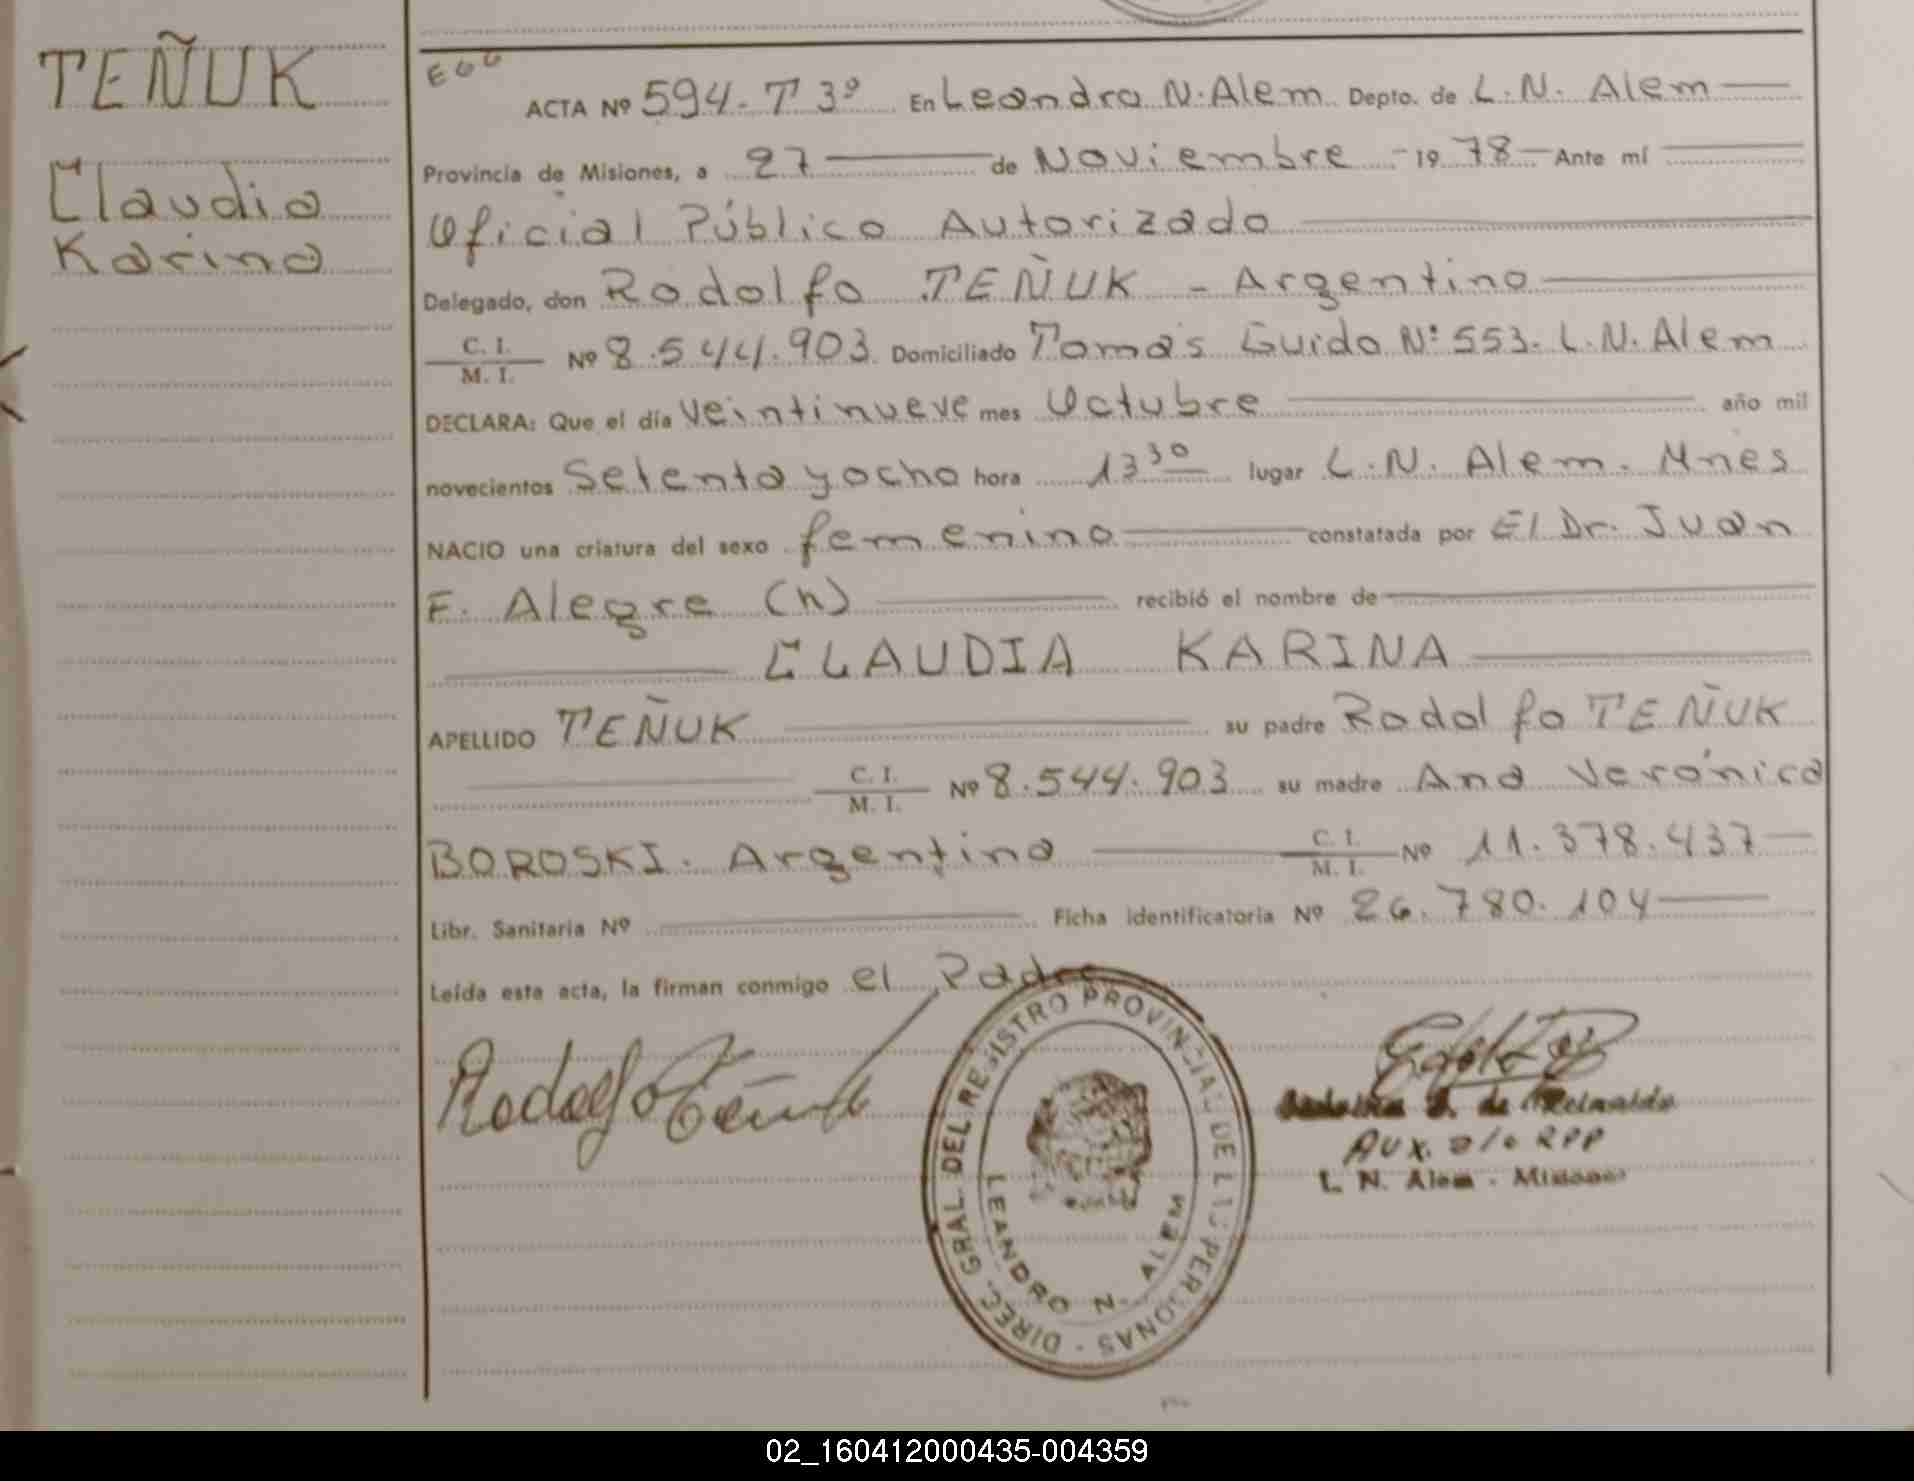 TEÑUK
Claudia
Karina
ACTA Nº 594. T 3º En Leandro N. Alem Depto. de L. N. Alem
Provincia de Misiones, a 27 de Noviembre 1978 Ante mí
Oficial Público Autorizado
Delegado, don Rodolfo TEÑUK - Argentino
C. I. / M. I. Nº 8.544.903 Domiciliado Tomás Guido Nº 553. L. N. Alem
DECLARA: Que el día veintinueve mes Octubre año mil
novecientos Setenta y ocho hora 13 30 lugar L. N. Alem. Mnes
NACIO una criatura del sexo femenino constatada por El Dr. Juan
F. Alegre (h) recibió el nombre de
CLAUDIA KARINA
APELLIDO TEÑUK su padre Rodolfo TEÑUK
C. I. / M. I. Nº 8.544.903 su madre Ana Verónica
BOROSKI. Argentina C. I. / M. I. Nº 11.378.437
Libr. Sanitaria Nº Ficha identificatoria Nº 26.780.104
Leída esta acta, la firman conmigo el Padre
Rodolfo Teñuk
DIREC. GRAL. DEL REGISTRO PROVINCIAL DE LAS PERSONAS
LEANDRO N. Alem
S. de Reinaldo
AUX. a/c RPP
L. N. Alem - Misiones
02_160412000435-004359